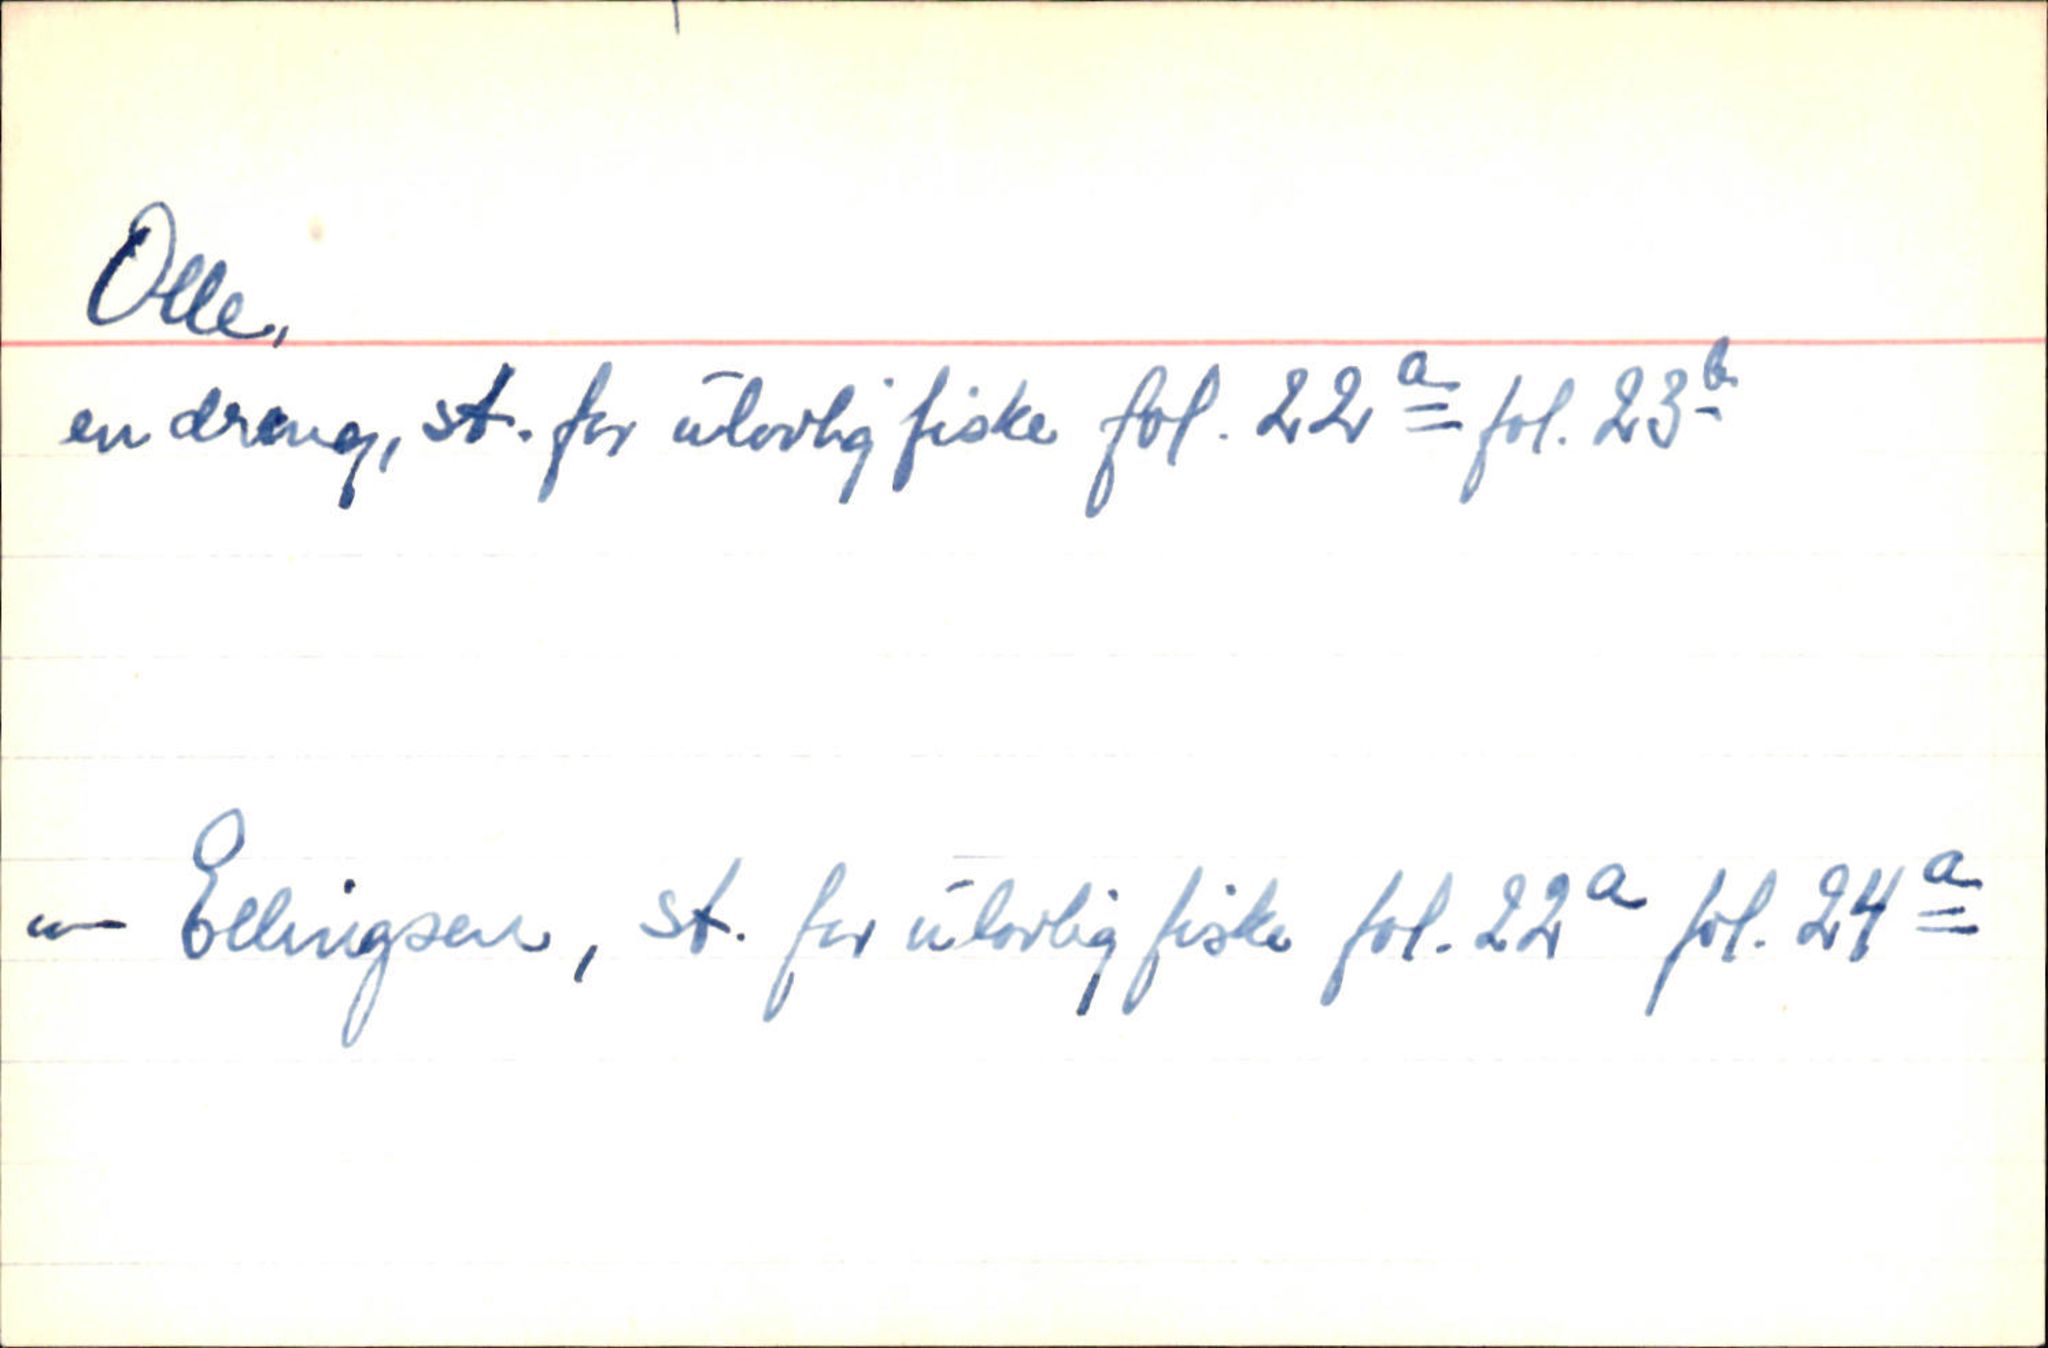 Olle,
en dreng, st. for ulovlig fiske fol. 22a fol. 23b
— Ellingsen, st. for ulovlig fiske fol. 22a fol. 24a